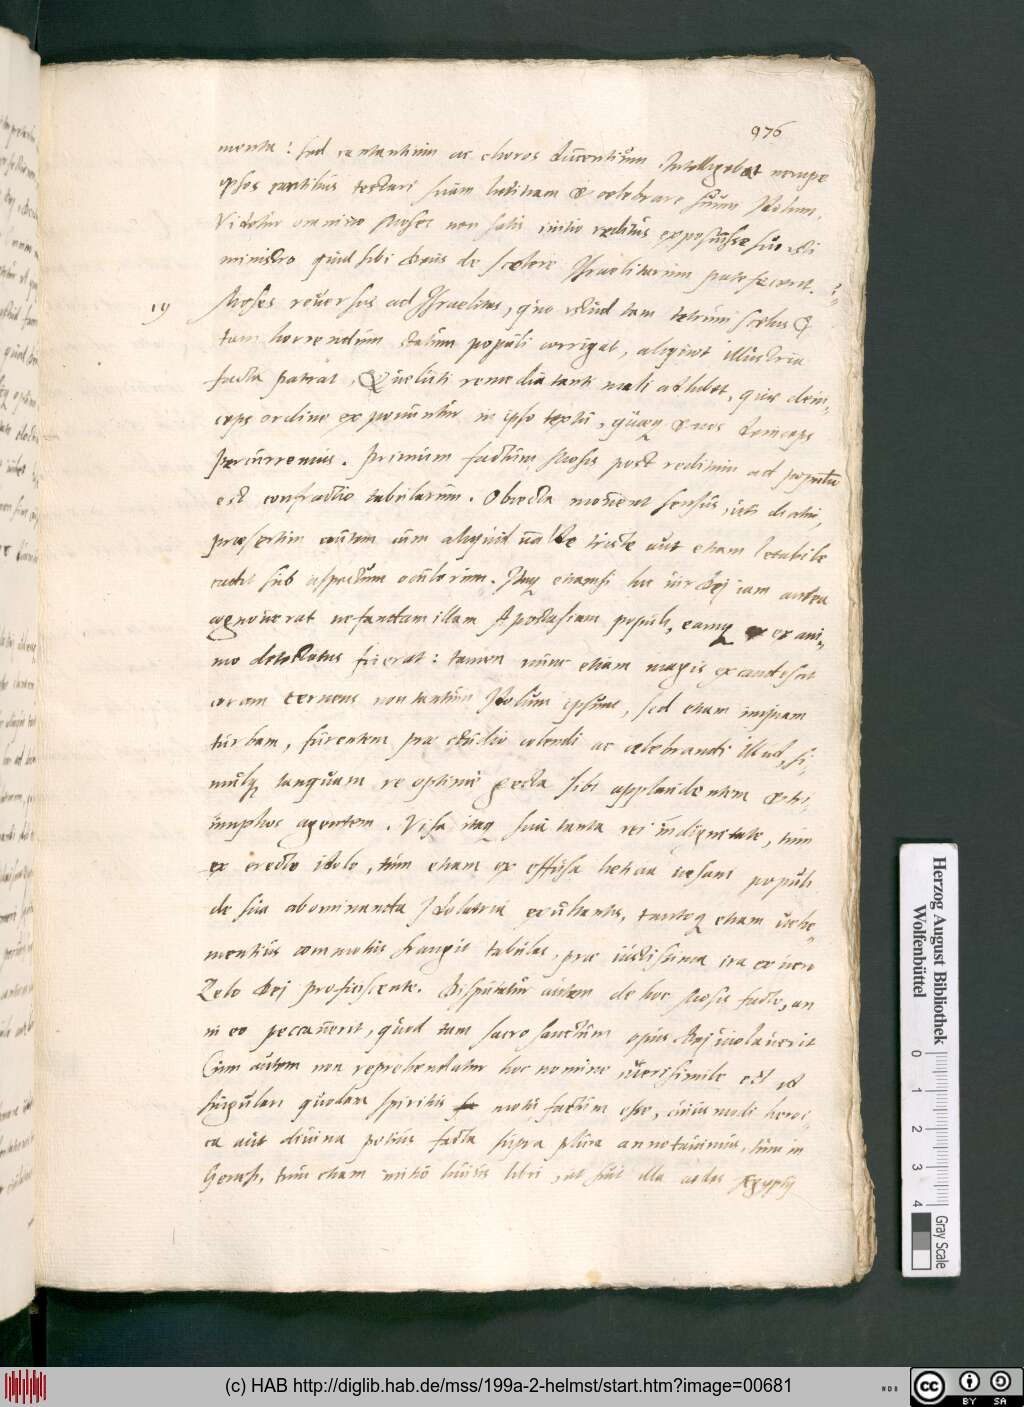 976
menta: sed cantantium ac choros ducentium. Intelligebat nempe
ipsos cantibus testari suam lætitiam & celebrare suum Idolum.
Videtur omnino Moses non satis initio reditus exposuisse suo
ministro quid sibi Deus de scelere Israelitarum patefecerit.
19 Moses reuersus ad Israelitas, quo istud tam tetrum scelus &
tam horrendum statim populi corrigat, aliquot illustria
facta patrat, & ueluti remedia tanti mali adhibet, quæ dein-
ceps ordine exponuntur in ipso textu, & nos deinceps
percurremus. Primum factum Mosis post reditum ad populum
est confractio tabularum. Obiecta mouent sensus, uti dictum,
præsertim autem cum aliquid ualde triste aut etiam
cadit sub aspectum oculorum. Itaq etiamsi hic uir Dej iam antea
cognouerat nefandam illam Apostasiam populi, eamq ex ani-
mo detestatus fuerat: tamen nunc etiam magis excandescit
coram cernens non tantum Idolum ipsum, sed etiam impiam
turbam, furentem præ studio colendi ac celebrandi illud, si-
mulq tanquam re optime gesta sibi applaudentem & tri-
umphos agentem. Visa itaq sua tanta rei indignitate, tum
ex erecto idolo, tum etiam ex effusa lætitia uesani populi
de sua abominanda Idolatria exultantis, tantoq etiam uehe-
mentius commotus frangit tabulas, præ iustissima ira ex uero
Zelo Dej proficiscente. Disputatur autem de hoc Mosis facto, an
in eo peccauerit, quod tam sacrosanctum opus Dej uiolauerit
Cum autem non reprehendatur hoc nomine uerisimile est
singulari quodam spiritus motu factum esse, cuiusmodi heroi-
ca aut diuina potius facta supra plura annotauimus, tum in
Genesi, tum etiam initio huius libri, ut fuit illa cædes Ægyptij
Herzog August Bibliothek
Wolfenbüttel
0 1 2 3 4
Gray Scale
(c) HAB http://diglib.hab.de/mss/199a-2-helmst/start.htm?image=00681
cc BY SA